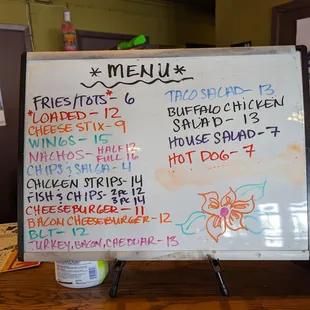 *MENU*
FRIES/TOTS* - 6
*LOADED - 12
CHEESE STIX - 9
WINGS - 15
NACHOS - HALF 13
FULL 16
CHIPS & SALSA - 4
CHICKEN STRIPS - 14
FISH & CHIPS - 2PC 12
3PC 14
CHEESEBURGER - 11
BACON CHEESEBURGER - 12
BLT - 12
TURKEY, BACON, CHEDDAR - 13
TACO SALAD - 13
BUFFALO CHICKEN
SALAD - 13
HOUSE SALAD - 7
HOT DOG - 7